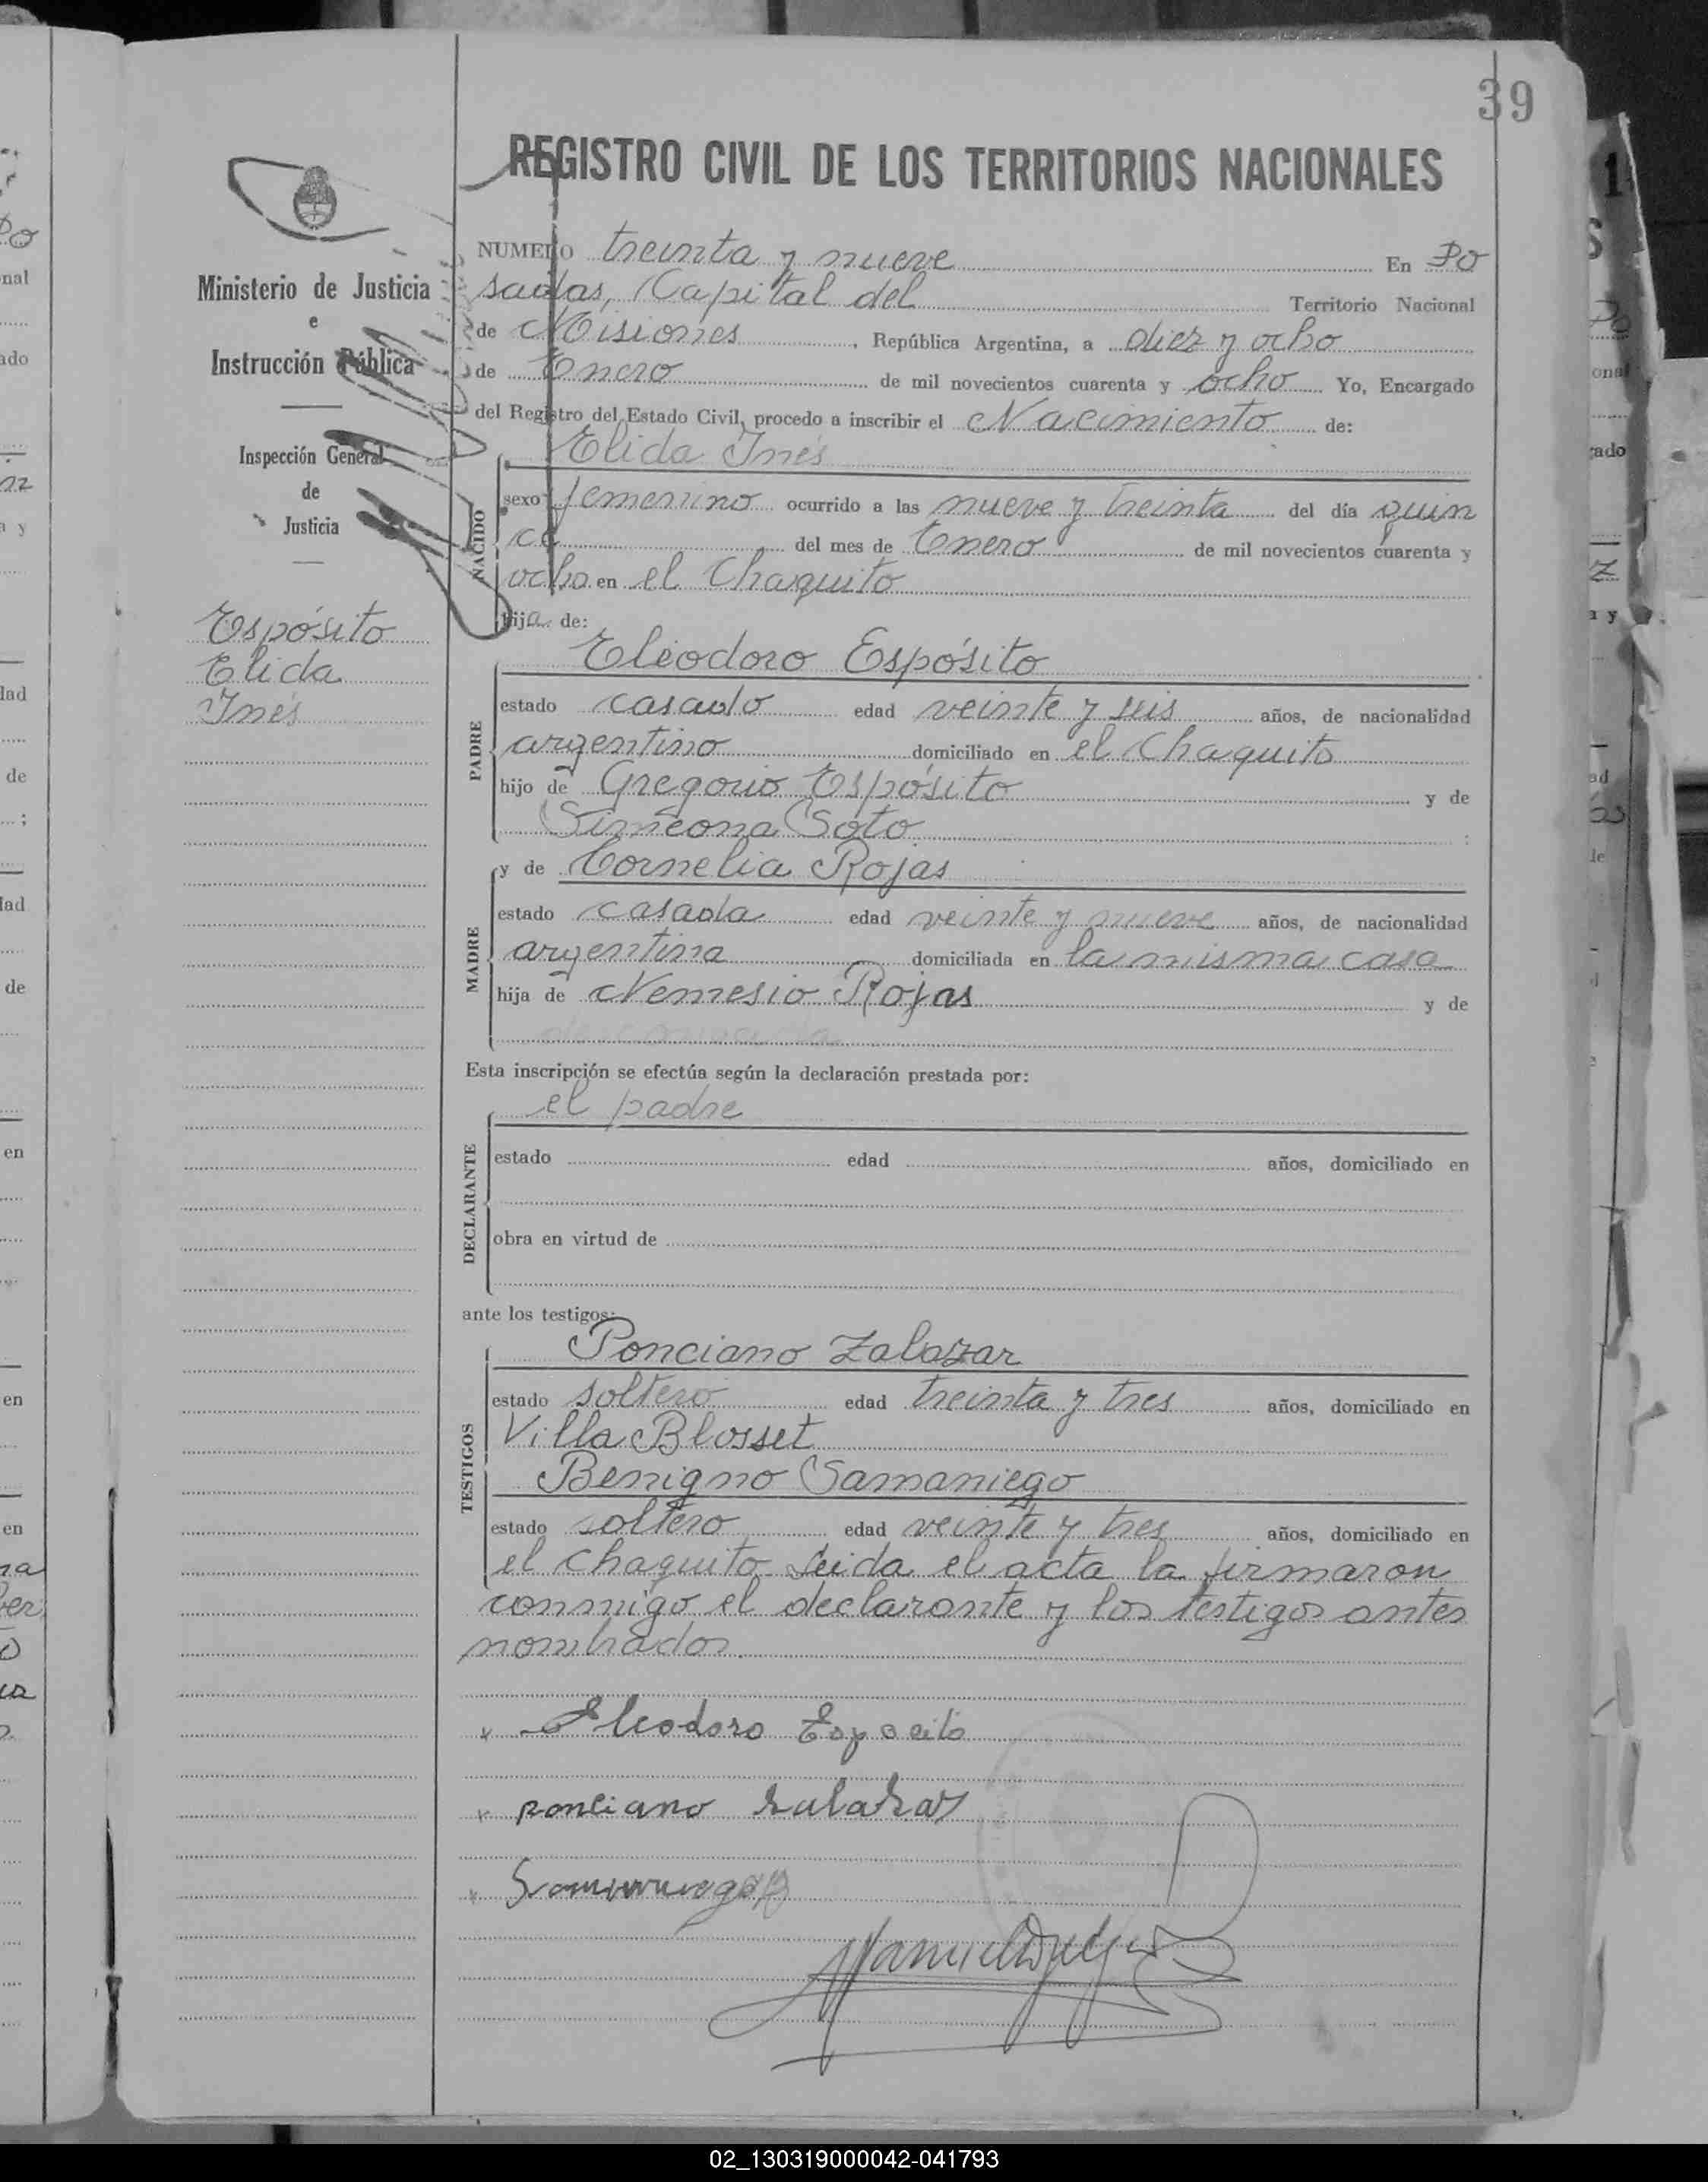 39
REGISTRO CIVIL DE LOS TERRITORIOS NACIONALES
Ministerio de Justicia
e
Instrucción Pública
Inspección General
de
Justicia
Espósito
Elida
Inés
NUMERO treinta y nueve En Po
sadas, Capital del Territorio Nacional
de Misiones, República Argentina, a diez y ocho
de Enero de mil novecientos cuarenta y ocho Yo, Encargado
del Registro del Estado Civil, procedo a inscribir el Nacimiento de:
Elida Inés
NACIDO
sexo femenino ocurrido a las nueve y treinta del día quin
ce del mes de Enero de mil novecientos cuarenta y
ocho en el Chaquito
hija de:
Eleodoro Espósito
PADRE
estado casado edad veinte y seis años, de nacionalidad
argentino domiciliado en el Chaquito
hijo de Gregorio Espósito y de
Simeona Soto
y de Cornelia Rojas
MADRE
estado casada edad veinte y nueve años, de nacionalidad
argentina domiciliada en la misma casa
hija de Nemesio Rojas y de
Esta inscripción se efectúa según la declaración prestada por:
el padre
DECLARANTE
estado edad años, domiciliado en
obra en virtud de
ante los testigos:
Ponciano Zalazar
TESTIGOS
estado soltero edad treinta y tres años, domiciliado en
Villa Blosset
Benigno Samaniego
estado soltero edad veinte y tres años, domiciliado en
el Chaquito Leida el acta la firmaron
conmigo el declarante y los testigos antes
nombrados.
Eleodoro Esposito
ponciano zalazar
02_130319000042-041793